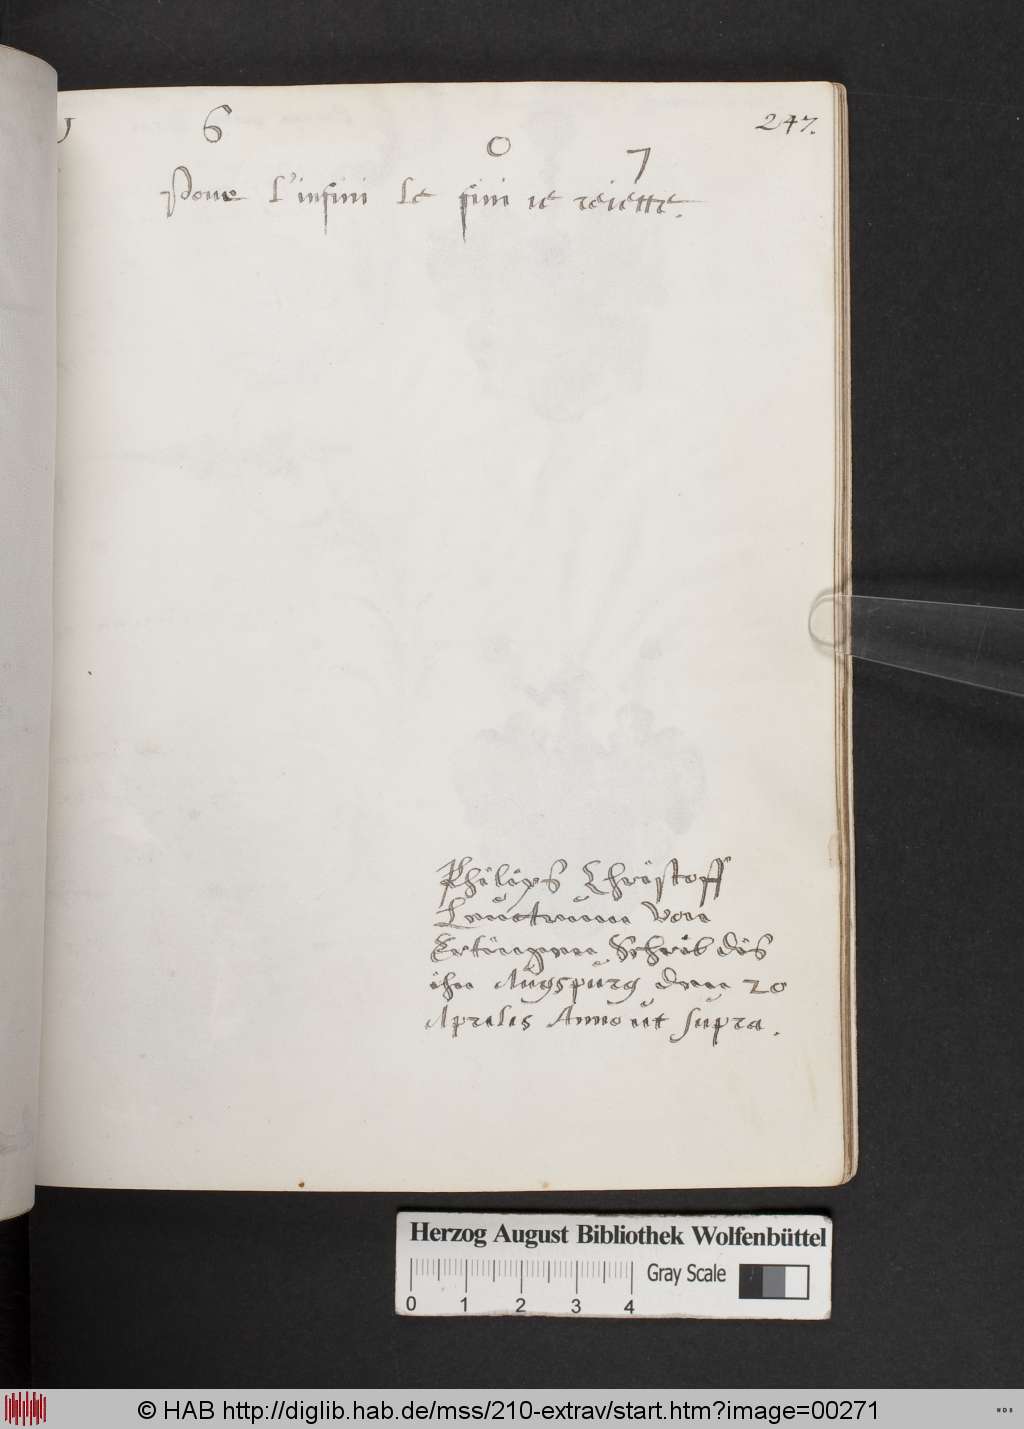 247.
1 6 0 7
Pour l'infini le fini ie reiette.
Philips Christoff
von
Ertingenn Schrib dis
ihn Augspurg denn 20
Aprilis Anno ut supra.
Herzog August Bibliothek Wolfenbüttel
Gray Scale
0 1 2 3 4
© HAB http://diglib.hab.de/mss/210-extrav/start.htm?image=00271